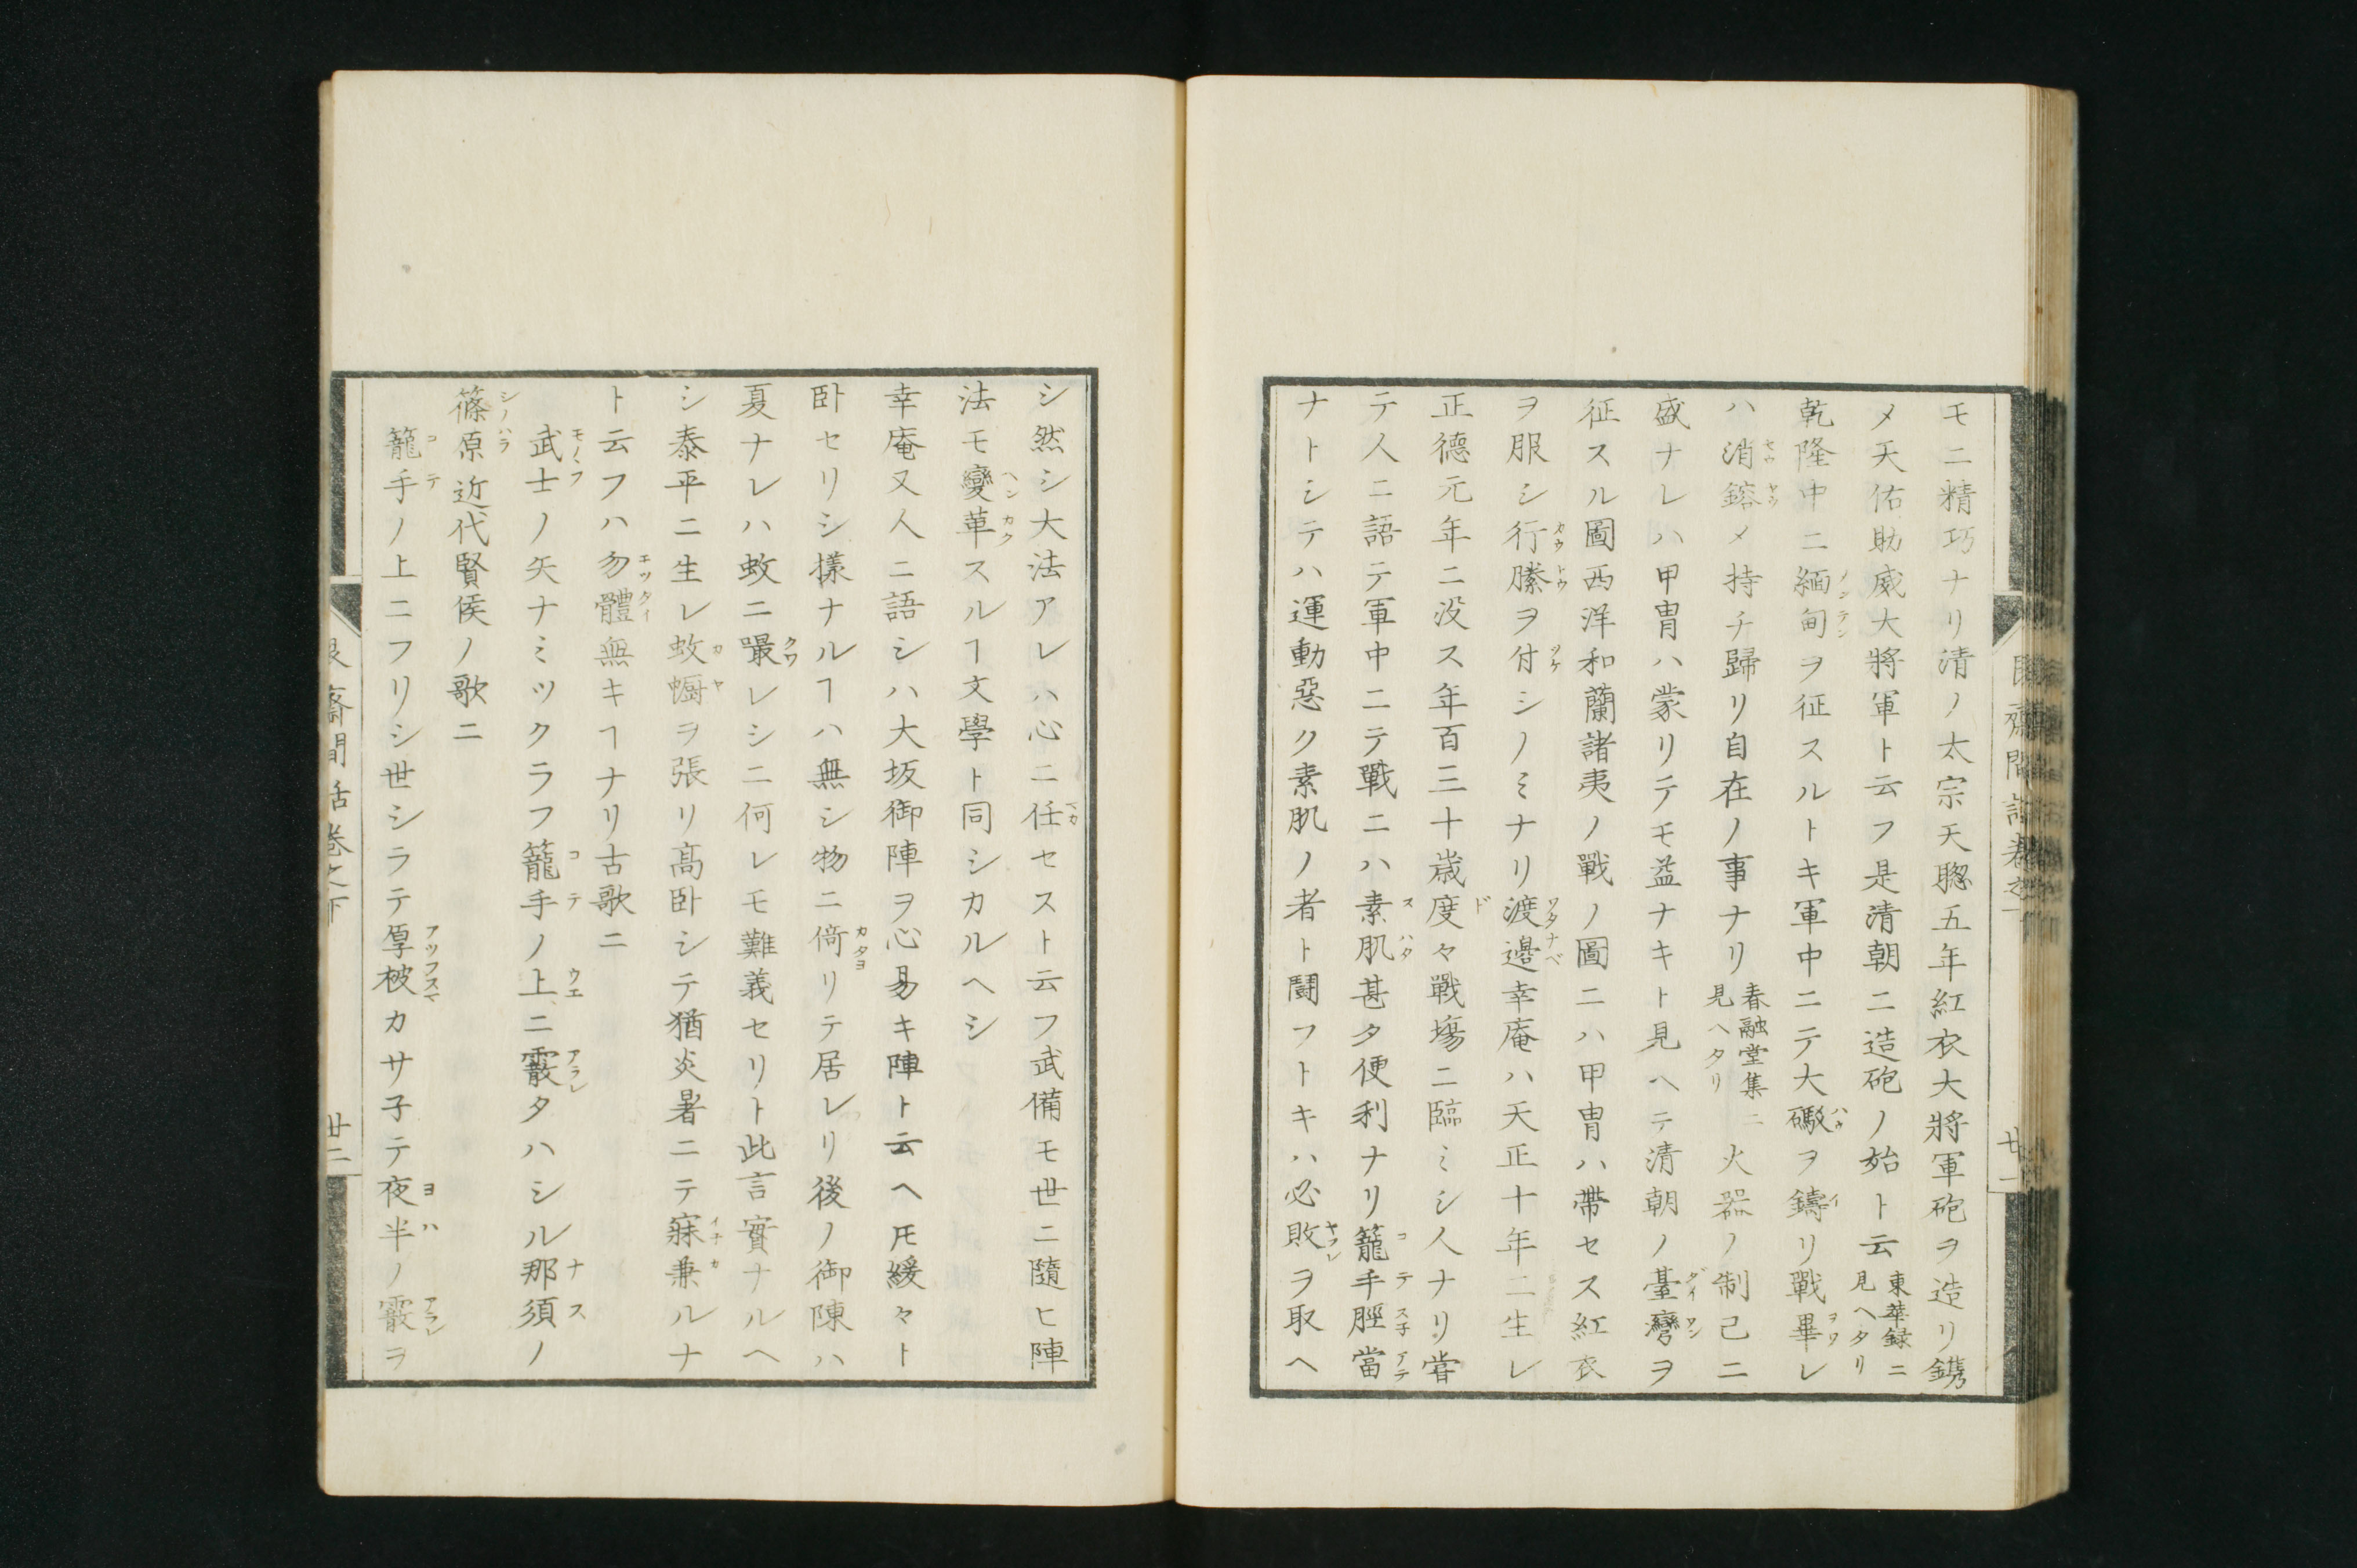 モニ精巧ナリ清ノ太宗天聡五年紅衣大將軍砲ヲ造リ鐫
メ天佑助威大將軍ト云フ是清朝ニ造砲ノ始ト云東華録ニ見ヘタリ
乾隆中ニ緬甸ヲ征スルトキ軍中ニテ大礮ヲ鑄リ戰畢レ
ハ消鎔メ持チ歸リ自在ノ事ナリ春融堂集ニ見ヘタリ火器ノ制己ニ
盛ナレハ甲冑ハ蒙リテモ益ナキト見ヘテ清朝ノ臺灣ヲ
征スル圖西洋和蘭諸夷ノ戰ノ圖ニハ甲冑ハ帶セス紅衣
ヲ服シ行縢ヲ付シノミナリ渡邉幸庵ハ天正十年ニ生レ
正德元年ニ没ス年百三十歳度々戰塲ニ臨ミシ人ナリ甞
テ人ニ語テ軍中ニテ戰ニハ素肌甚タ便利ナリ籠手脛當
ナトシテハ運動惡ク素肌ノ者ト鬪フトキハ必敗ヲ取ヘ
廿一
シ然シ大法アレハ心ニ任セスト云フ武備モ世ニ隨ヒ陣
法モ變革スルヿ文學ト同シカルヘシ
幸庵又人ニ語シハ大坂御陣ヲ心易キ陣ト云ヘ𪜈緩々ト
卧セリシ樣ナルヿハ無シ物ニ倚リテ居レリ後ノ御陳ハ
夏ナレハ蚊ニ嘬レシニ何レモ難義セリト此言實ナルヘ
シ泰平ニ生レ蚊幮ヲ張リ高卧シテ猶炎暑ニテ寐兼ルナ
ト云フハ勿體無キヿナリ古歌ニ
武士ノ矢ナミツクラフ籠手ノ上ニ霰タハシル那須ノ
篠原近代賢侯ノ歌ニ
籠手ノ上ニフリシ世シラテ厚被カサ子テ夜半ノ霰ヲ
齋間話卷之下
廿二